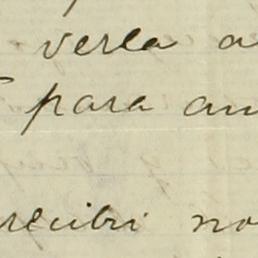 verla a
para am
recibi no